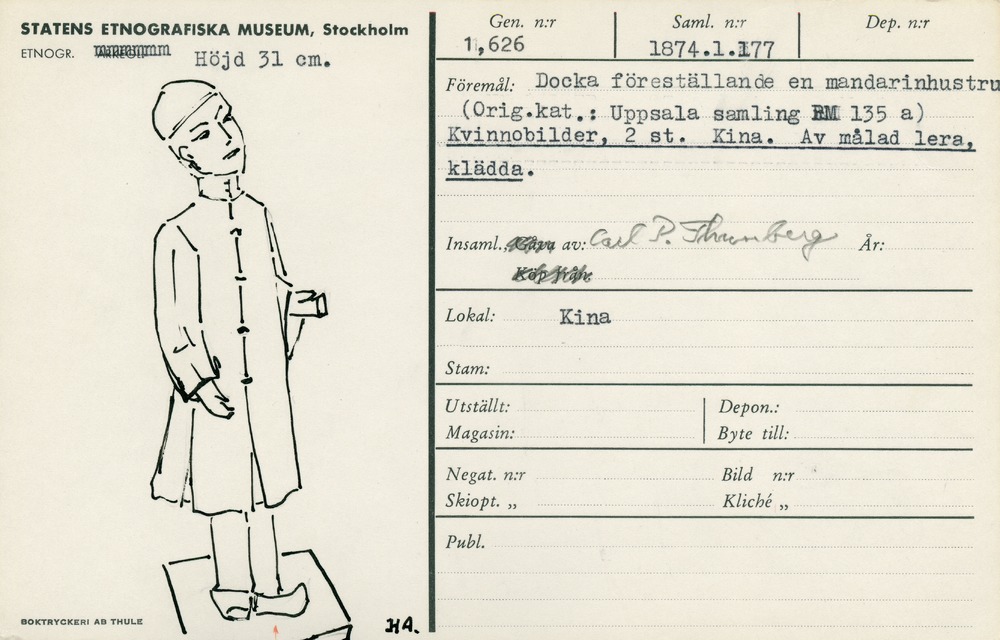 STATENS ETNOGRAFISKA MUSEUM, Stockholm
ETNOGR.
Höjd 31 cm.
HA.
BOKTRYCKERI AB THULE
Gen. n:r Saml. n:r Dep. n:r
11,626 1874.1.177
Föremål: Docka föreställande en mandarinhustru
(Orig.kat.: Uppsala samling RM 135 a)
Kvinnobilder, 2 st. Kina. Av målad lera,
klädda.
Insaml., Gåva av: Carl P. Thunberg År:
Köp från:
Lokal: Kina
Stam:
Utställt: Depon.:
Magasin: Byte till:
Negat. n:r Bild n:r
Skiopt. „ Kliché „
Publ.